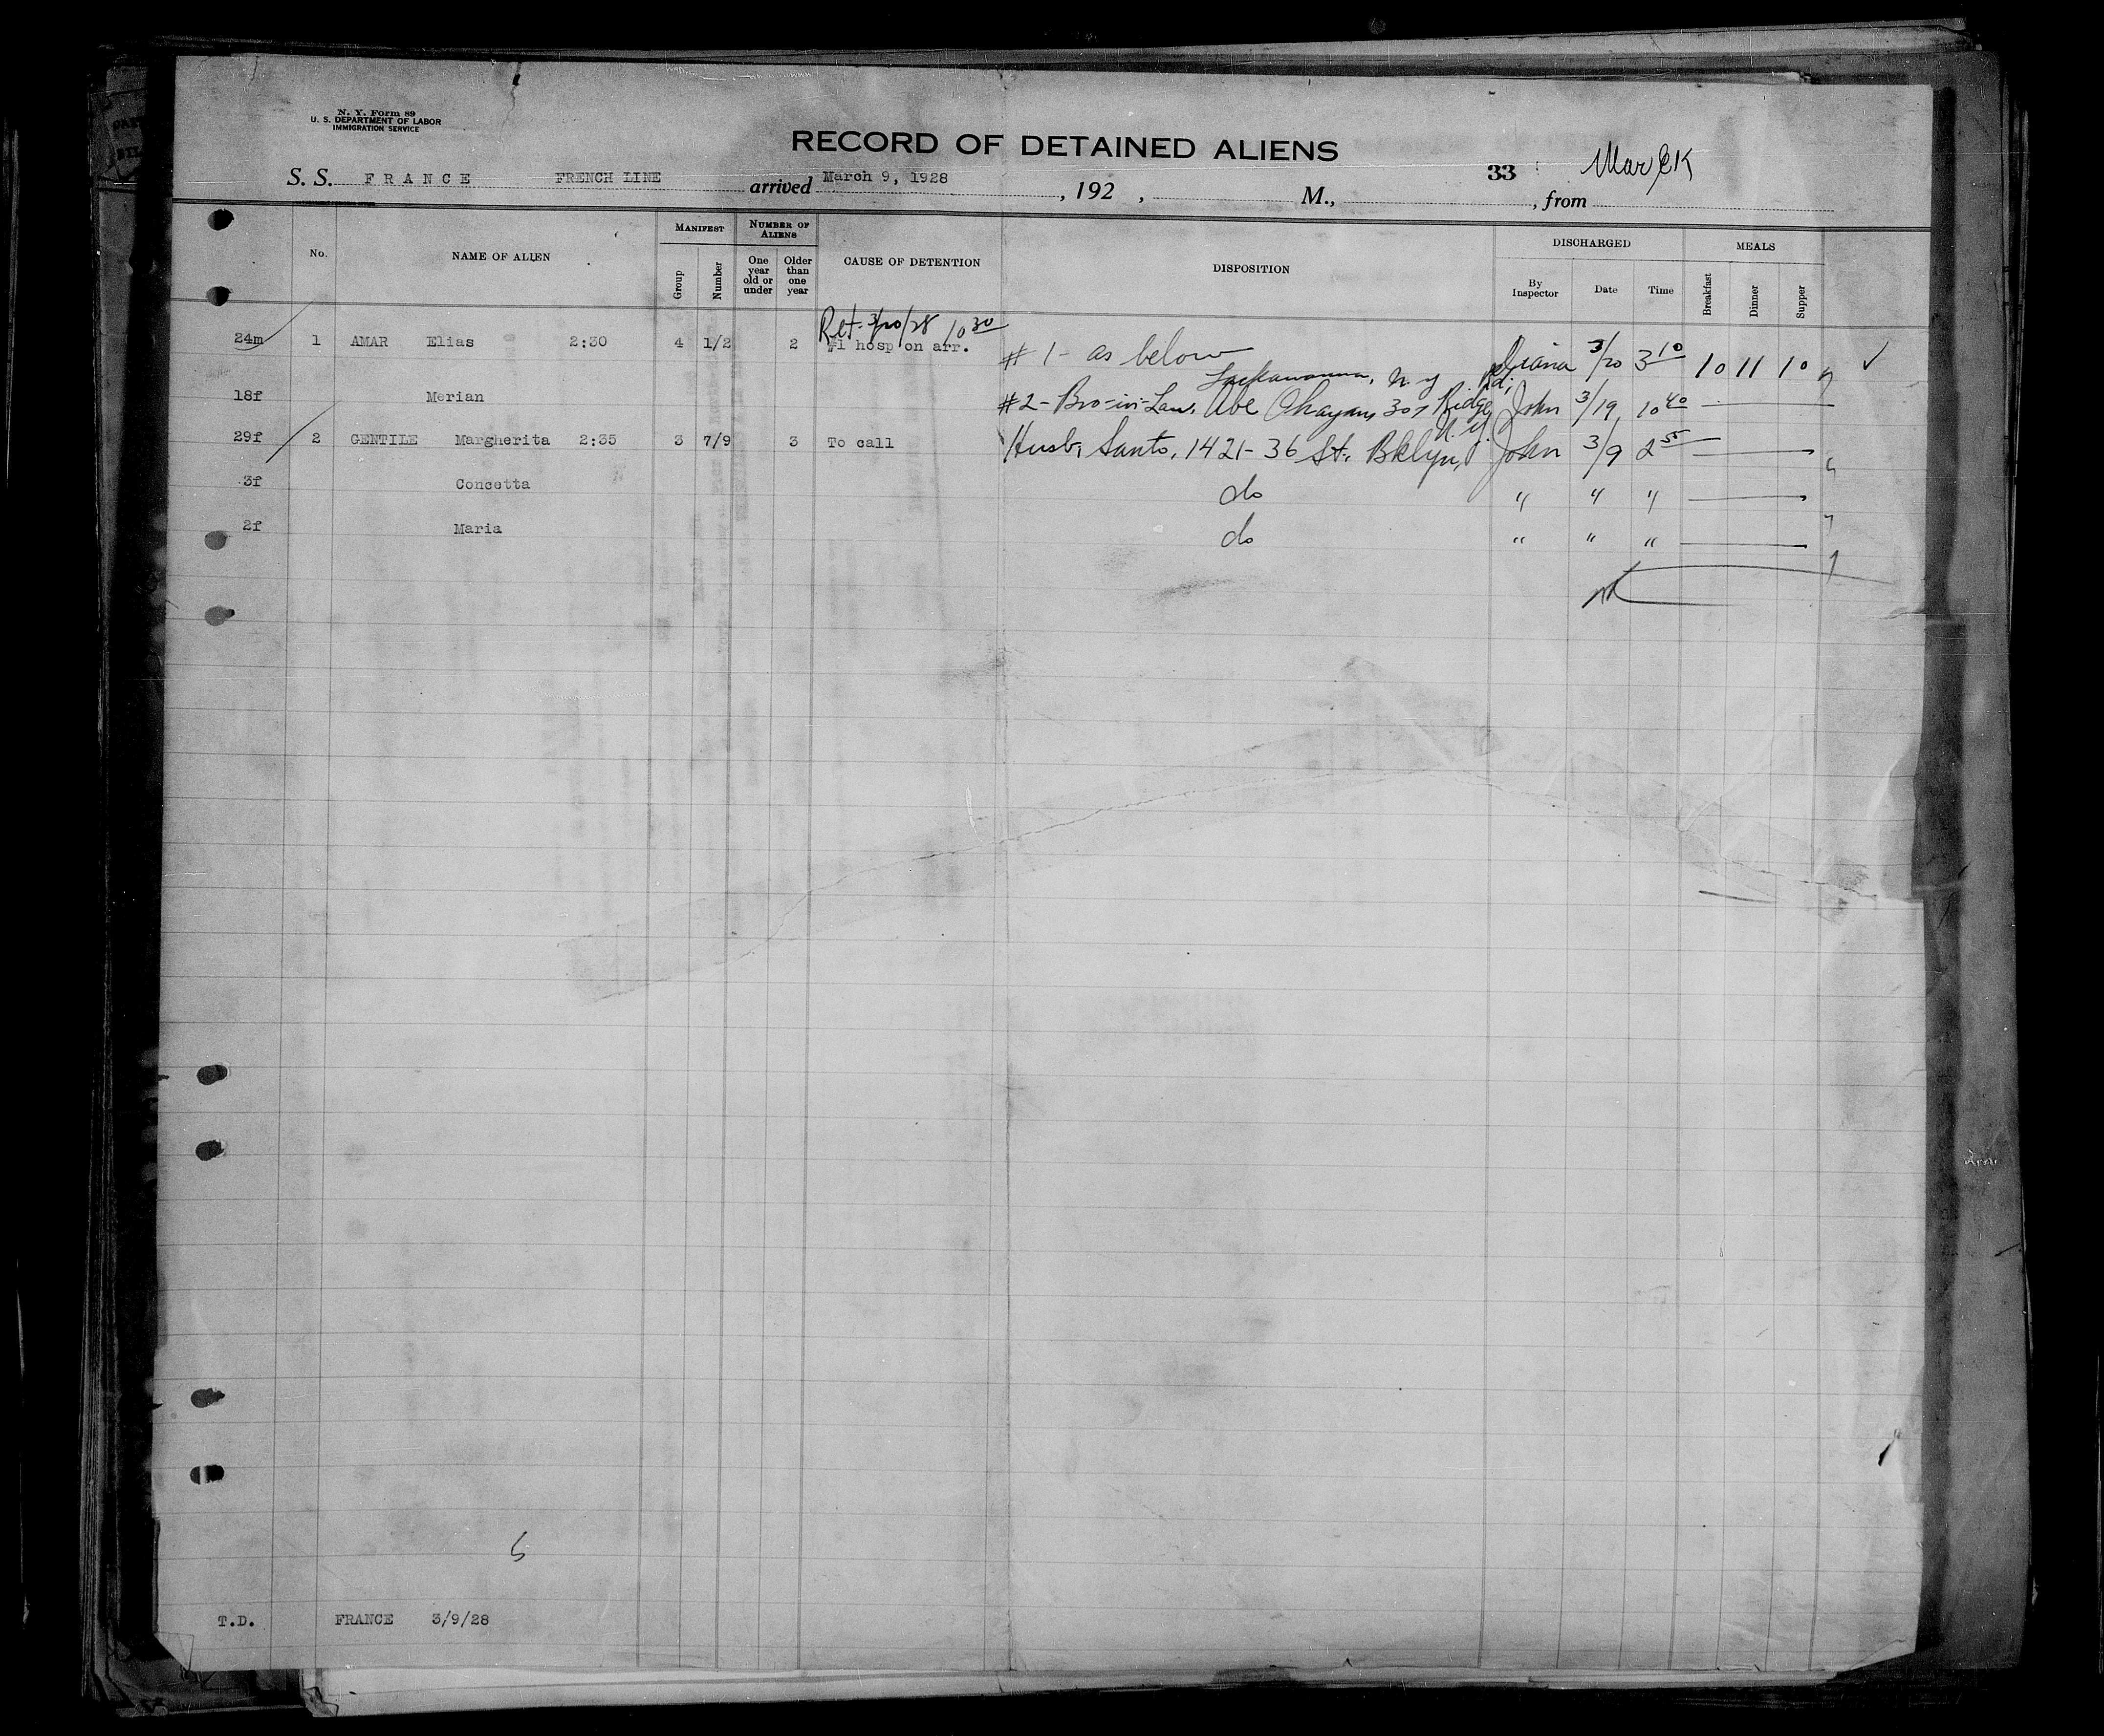 N. Y. Form 89
U. S. DEPARTMENT OF LABOR
IMMIGRATION SERVICE
RECORD OF DETAINED ALIENS
S. S. FRANCE FRENCH LINE arrived March 9, 1928, 192 , M., 33 , from
No. NAME OF ALIEN MANIFEST Group Number NUMBER OF ALIENS One year old or under Older than one year CAUSE OF DETENTION DISPOSITION DISCHARGED By Inspector Date Time MEALS Breakfast Dinner Supper
Ret. 3/20/28 10 30
24m 1 AMAR Elias 2:30 4 1/2 2 #1 hosp on arr. #1 - as below 3/20 3 10 10 11 10 ✓
Lackawanna, N. Y. Rd,
18f Merian #2 - Bro-in-Law, Abe 307 Ridge John 3/19 10 40
N. Y.
29f 2 GENTILE Margherita 2:35 3 7/9 3 To call Husb, Santo, 1421-36 St. Bklyn, John 3/9 2 55
3f Concetta do " " "
2f Maria do " " "
5
T.D. FRANCE 3/9/28